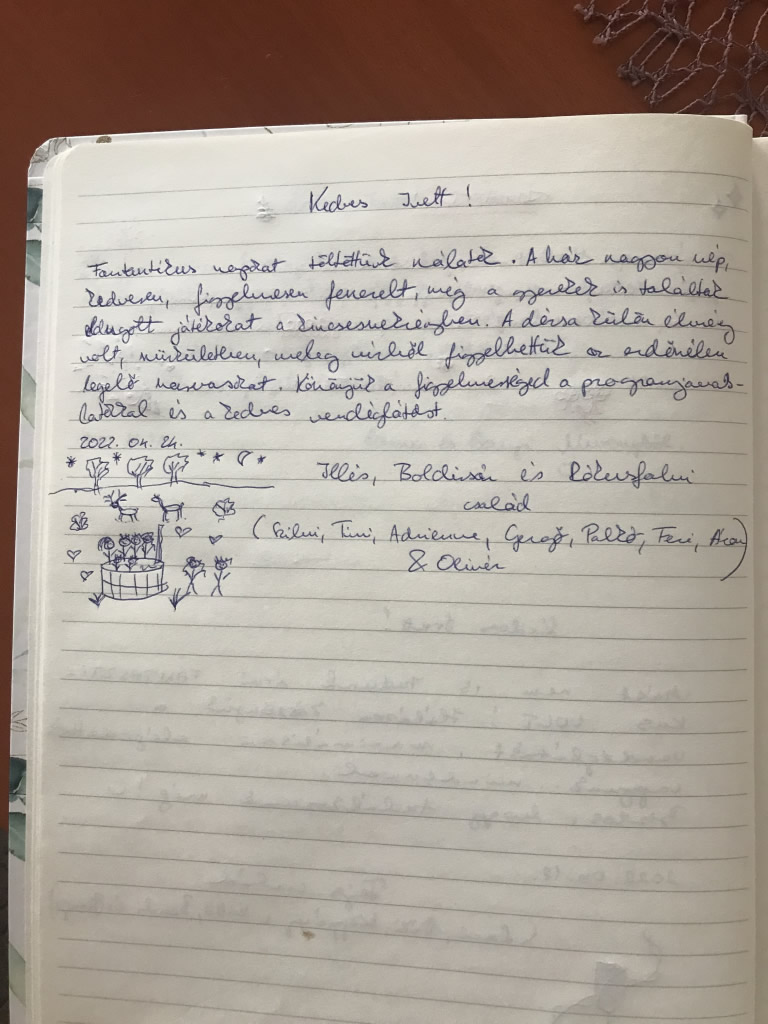 Kedves Ivett!
Fantasztikus napokat töltöttünk nálatok. A ház nagyon szép,
kedvesen, figyelmesen felszerelt, még a gyerekek is találtak
eldugott játékokat a kincsesszekrényben. A dézsa külön élmény
volt, szürkületben, meleg vízből figyelhettük az erdőszélen
legelő szarvasokat. Köszönjük a figyelmességed a programjavas-
latokkal és a kedves vendéglátást.
2022. 04. 24.
Illés, Boldizsár és Rókusfalvi
család
(Szilvi, Timi, Adrienne, Gergő, Palkó, Feri, Áron)
& Olivér